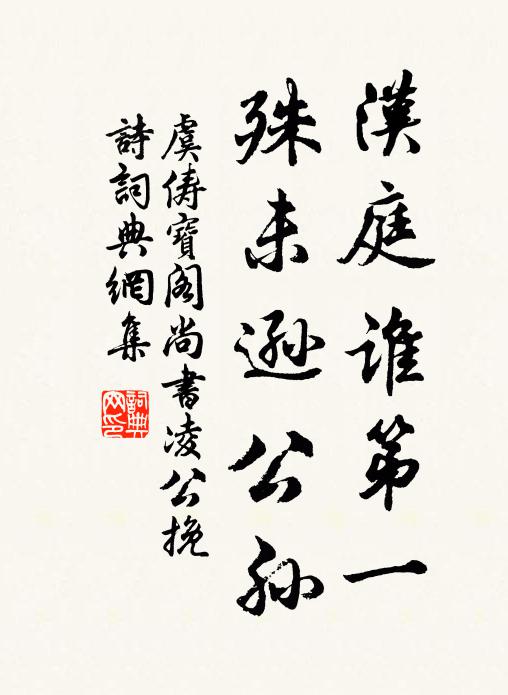 漢庭誰第一
殊未遜公孫
虞儔寶閣尚書凌公挽
詩詞典網集
詞典網印